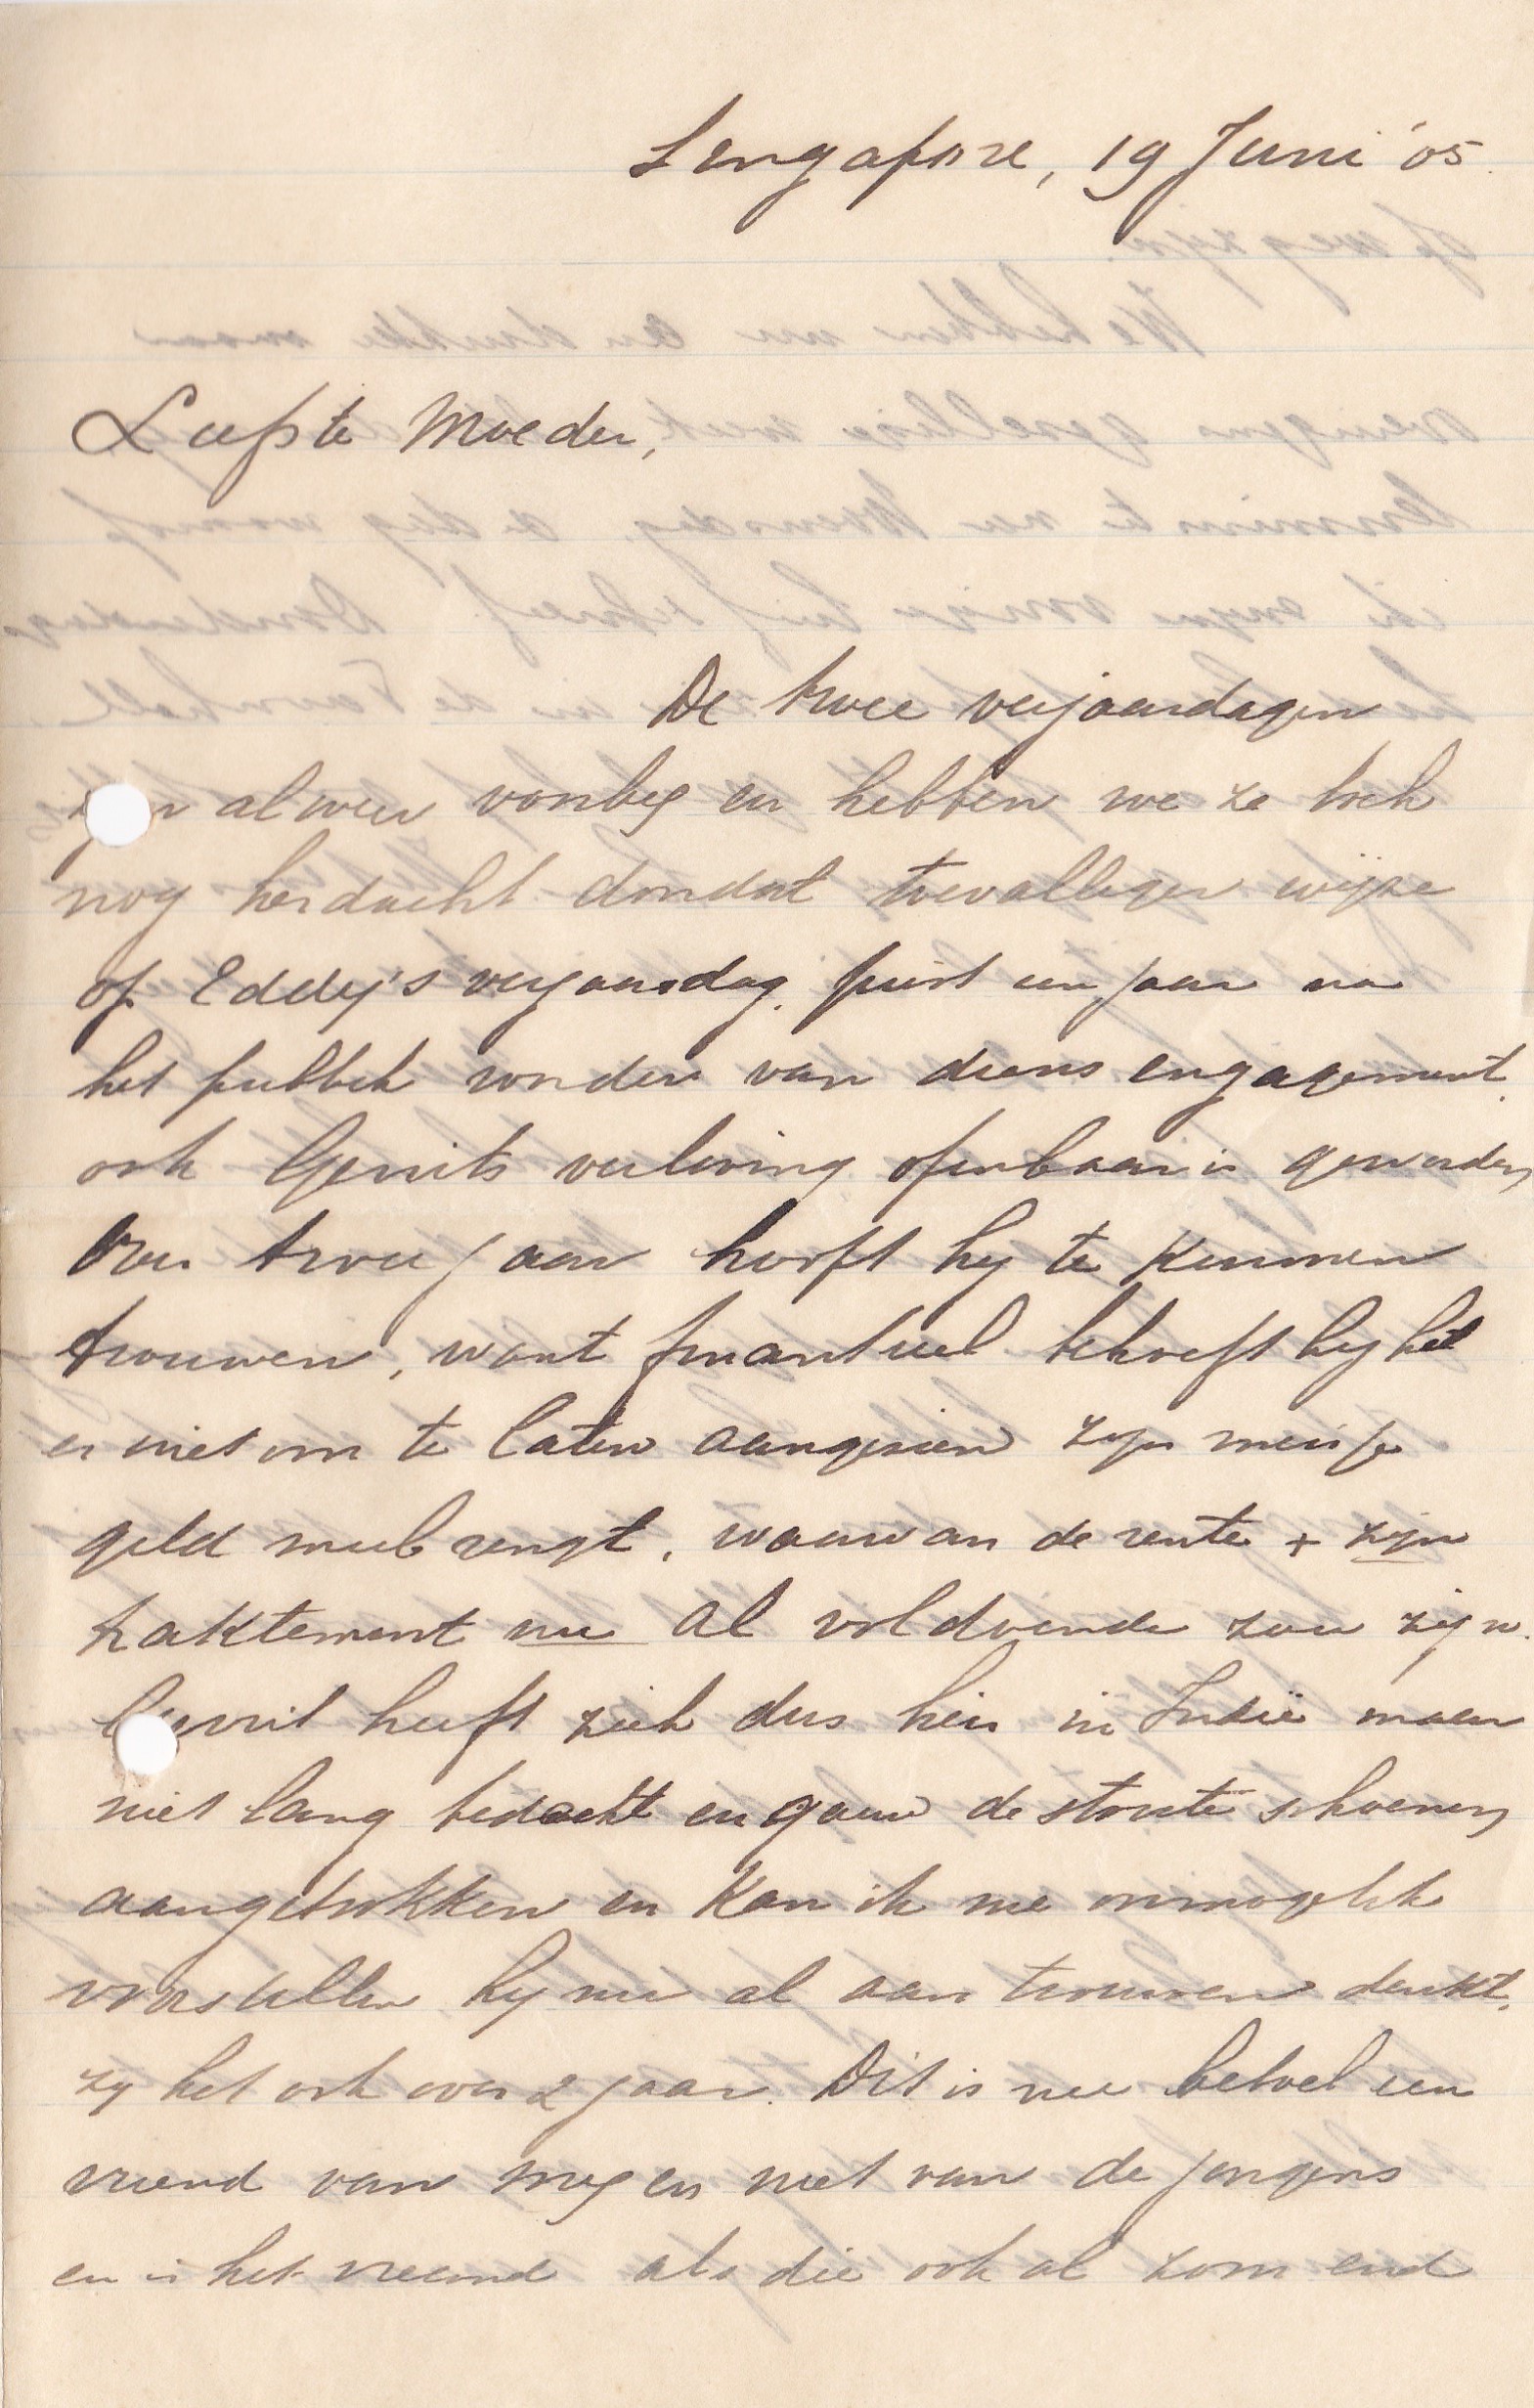 Singapore, 19 Juni '05.
Liefste Moeder,
De twee verjaardagen
zijn alweer voorbij en hebben we ze toch
nog herdacht doordat toevalliger wijze
op Eddy's verjaardag, juist een jaar na
het publiek worden van diens engagement,
ook Gerrits verloving openbaar is geworden,
Over twee jaar hoopt hij te kunnen
trouwen, want finantieel behoeft hij het
er niet om te laten aangezien zijn meisje
geld meebrengt, waarvan de rente + zijn
traktement nu al voldoende zou zijn.
Gerrit heeft zich dus hier in Indië maar
niet lang bedacht en gauw de stoute schoenen
aangetrokken en kan ik me onmogelijk
voorstellen hij nu al aan trouwen denkt,
zij het ook over 2 jaar. Dit is nu betoel een
vriend van mij en niet van de jongens
en is het vreemd als die ook al zoo'n eind